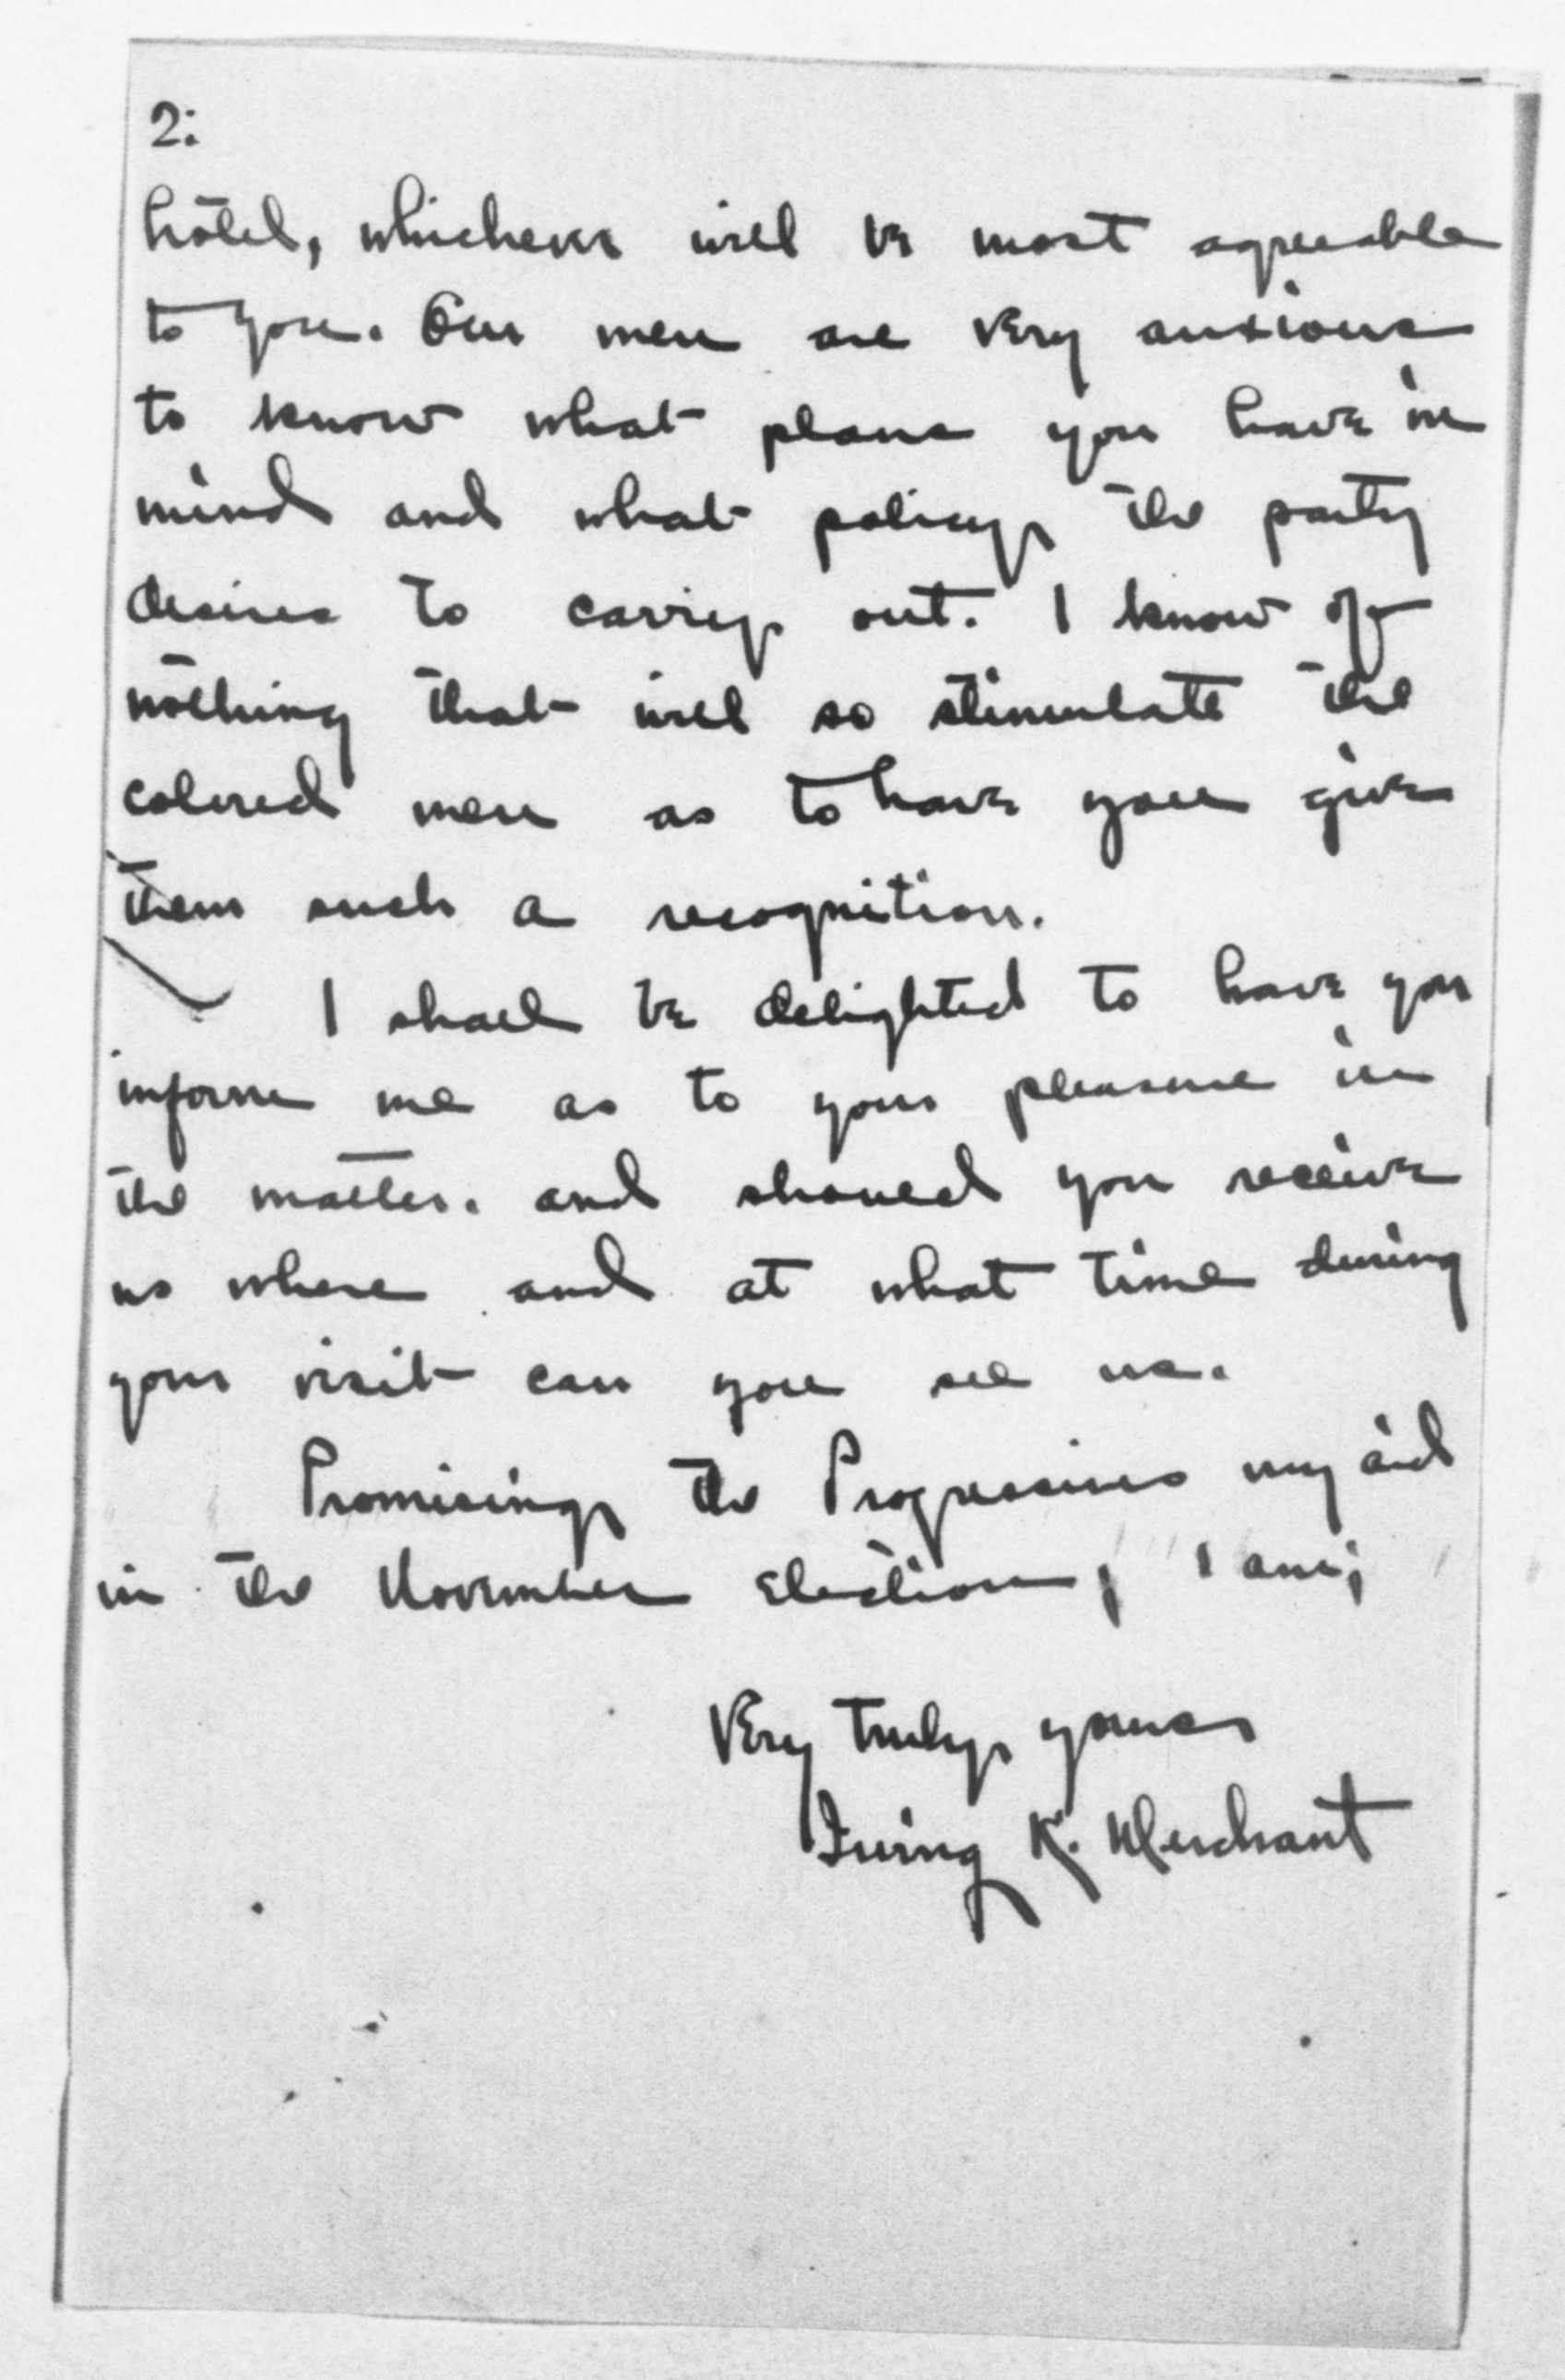 2:
hotel, whichever will be most agreeable
to you. Our men are very anxious
to know what plans you have in
mind and what policy the party
desires to carry out. I know of
nothing that will so stimulate the
colored men as to have you give
them such a recognition.
I shall be delighted to have you
inform me as to your pleasure in
the matter. and should you receive
us where and at what time during
your visit can you see us.
Promising the Progressives my aid
in the November election, I am;
Very truly yours
Irving K. Merchant